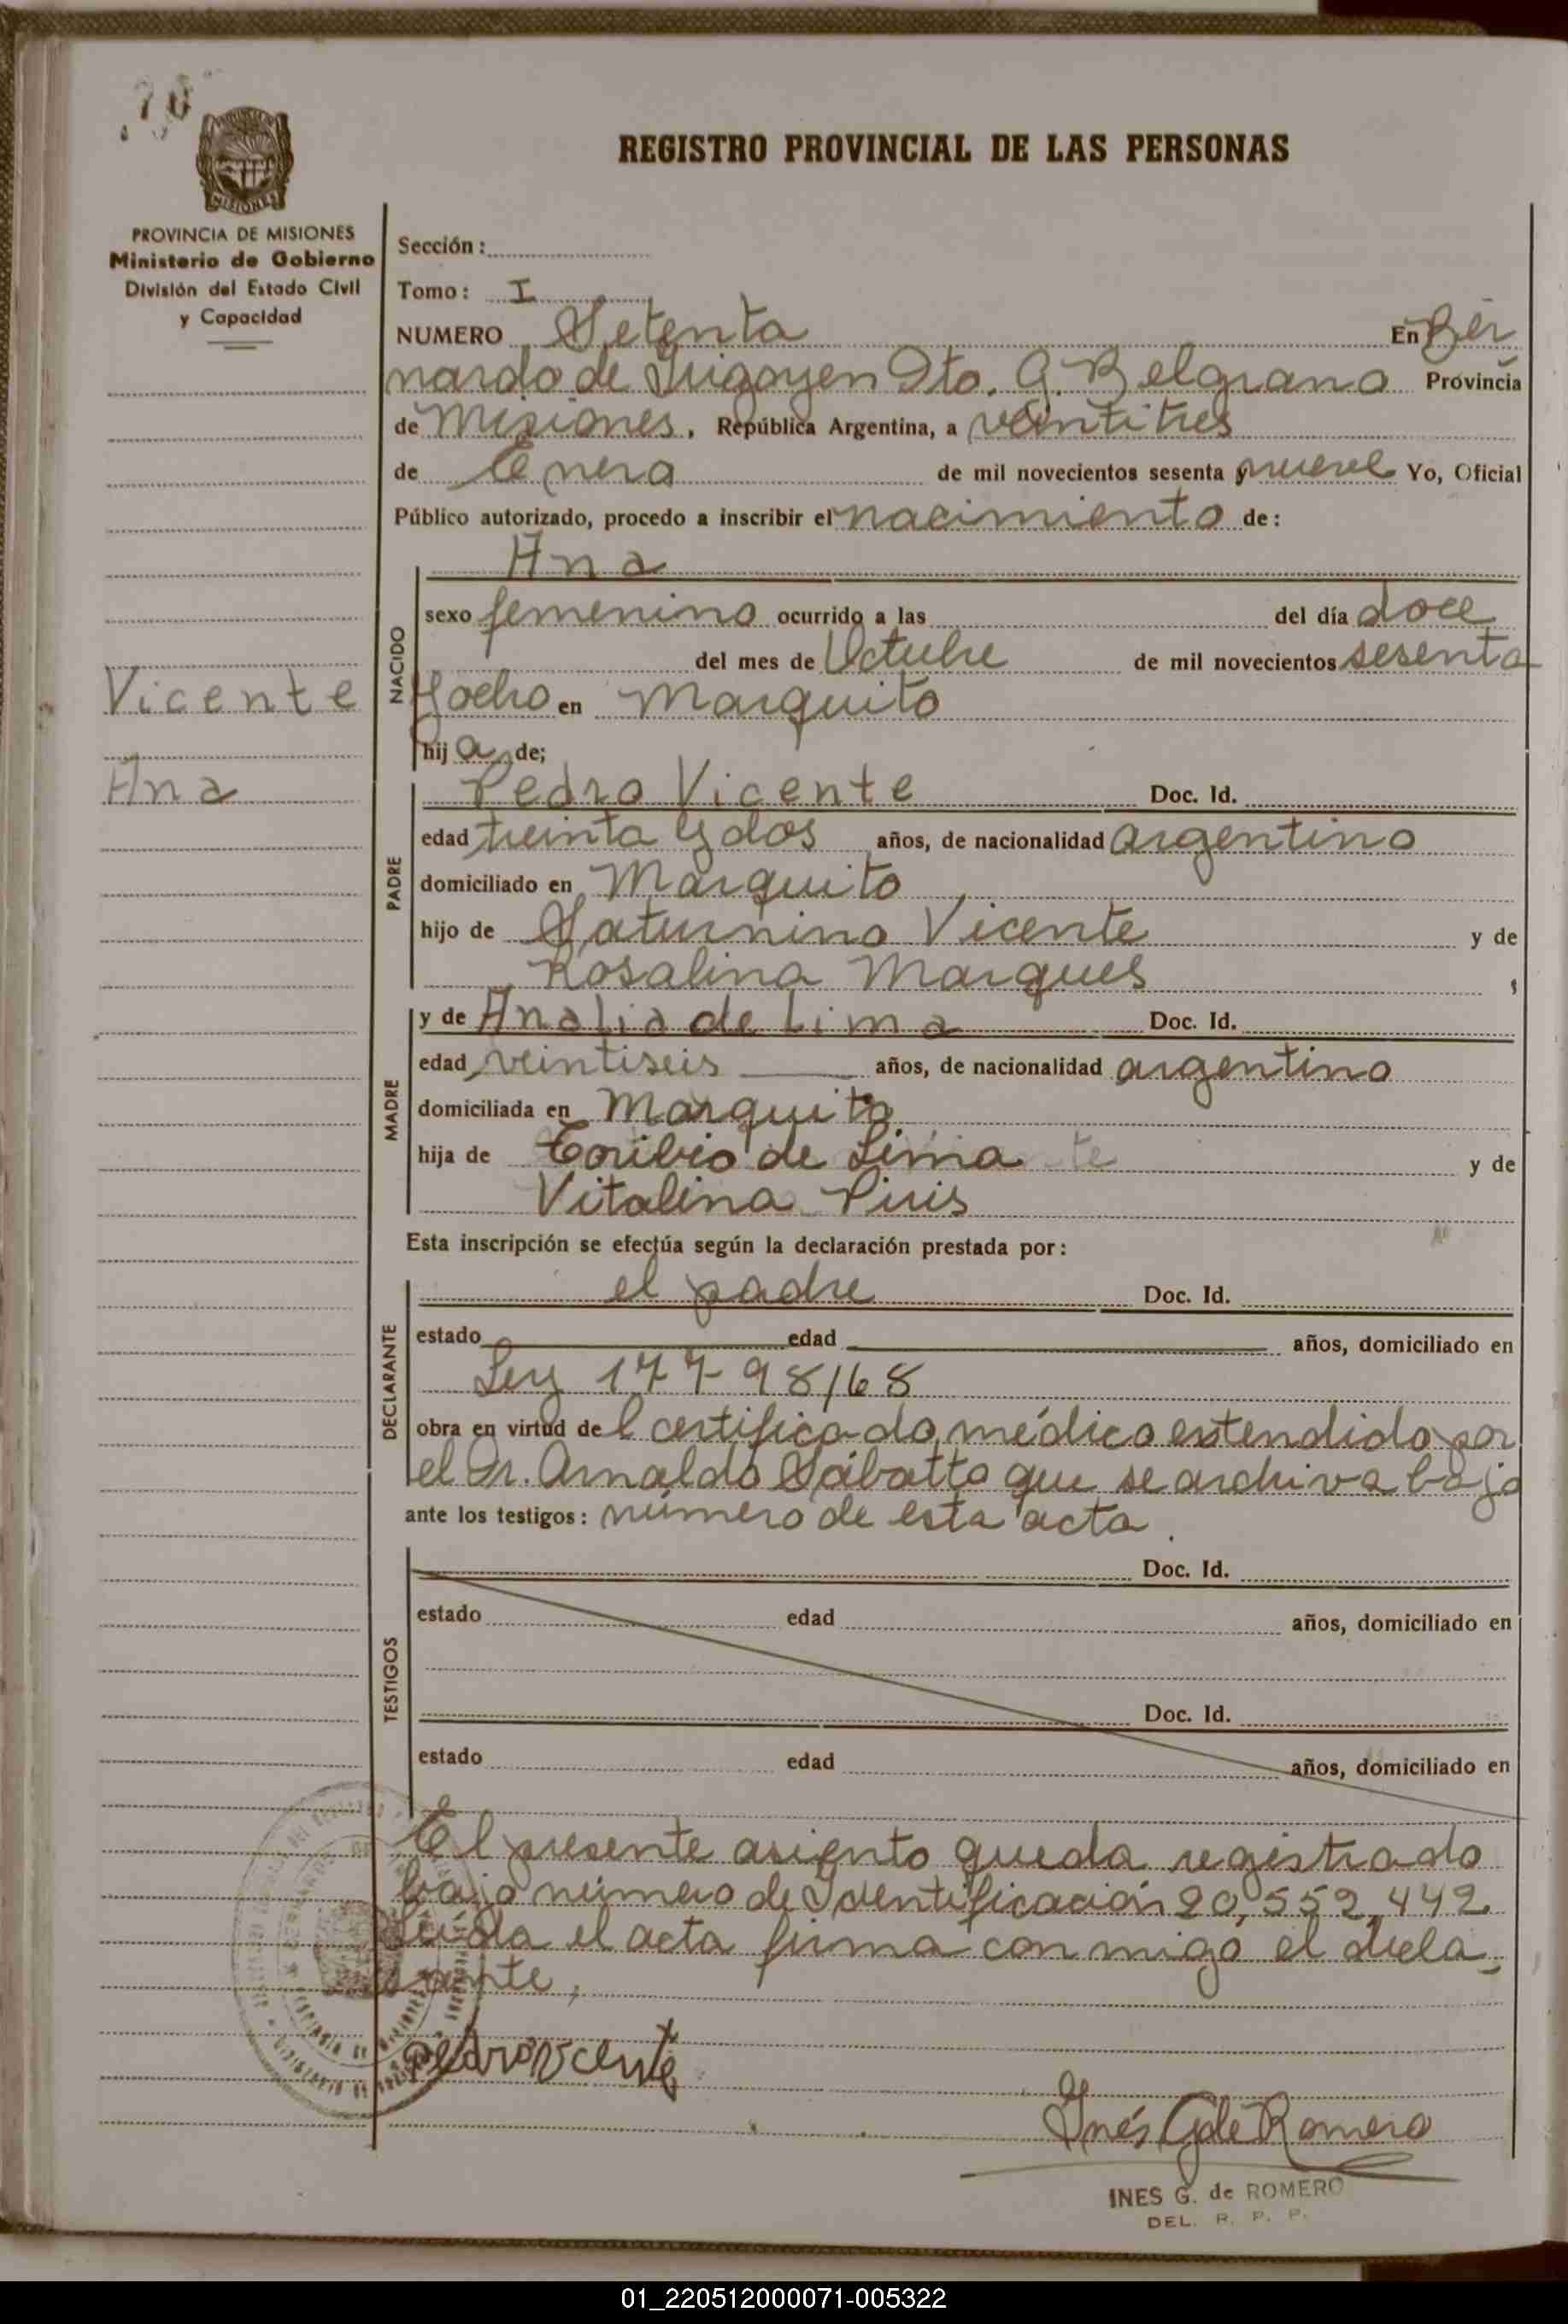 70
MISIONES
REGISTRO PROVINCIAL DE LAS PERSONAS
PROVINCIA DE MISIONES
Ministerio de Gobierno
División del Estado Civil
y Capacidad
Vicente
Ana
Sección:
Tomo: I
NUMERO Setenta En Ber
nardo de Irigoyen Dto. G. Belgrano Provincia
de Misiones, República Argentina, a veintitres
de Enero de mil novecientos sesenta y nueve Yo, Oficial
Público autorizado, procedo a inscribir el nacimiento de:
Ana
NACIDO
sexo femenino ocurrido a las del día doce
del mes de Octubre de mil novecientos sesenta
y ocho en Marquito
hij a de;
PADRE
Pedro Vicente Doc. Id.
edad treinta y dos años, de nacionalidad argentino
domiciliado en Marquito
hijo de Saturnino Vicente y de
Rosalina Marques ,
MADRE
y de Analia de Lima Doc. Id.
edad veintiseis años, de nacionalidad argentino
domiciliada en Marquito
hija de Toribio de Lima y de
Vitalina Piris
Esta inscripción se efectúa según la declaración prestada por:
DECLARANTE
el padre Doc. Id.
estado edad años, domiciliado en
Ley 17798/68
obra en virtud de l certificado médico extendido por
el Dr. Arnaldo Sábatto que se archiva bajo
ante los testigos: número de esta acta.
TESTIGOS
Doc. Id.
estado edad años, domiciliado en
Doc. Id.
estado edad años, domiciliado en
El presente asiento queda registrado
bajo número de Identificación 20,552,442
Leída el acta firma conmigo el decla
rante,
Pedro Vicente
Inés G de Romero
INES G. de ROMERO
DEL. R. P. P.
01_220512000071-005322